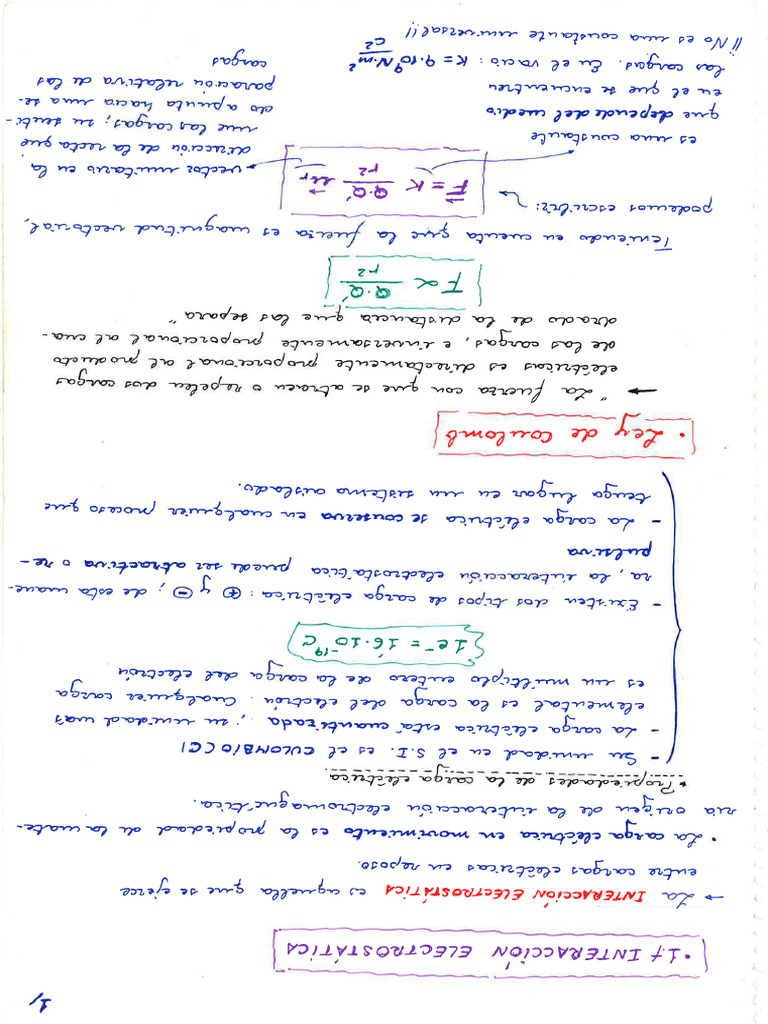 1/
• 1.- INTERACCIÓN ELECTROSTÁTICA
→ La INTERACCIÓN ELECTROSTÁTICA es aquella que se ejerce
entre cargas eléctricas en reposo.
• La carga eléctrica en movimiento es la propiedad de la mate-
ria origen de la interacción electromagnética.
* Propiedades de la carga eléctrica.
- Su unidad en el S.I. es el CULOMBIO (C)
- La carga eléctrica está "cuantizada"; su unidad más
elemental es la carga del electrón. Cualquier carga
es un múltiplo entero de la carga del electrón
1 e⁻ = 1'6·10⁻¹⁹ C
- Existen dos tipos de carga eléctrica: ⊕ y ⊖; de esta mane-
ra, la interacción electrostática puede ser atractiva o re-
pulsiva
- La carga eléctrica se conserva en cualquier proceso que
tenga lugar en un sistema aislado.
• Ley de Coulomb
→ "La fuerza con que se atraen o repelen dos cargas
eléctricas es directamente proporcional al producto
de las cargas, e inversamente proporcional al cua-
drado de la distancia que las separa"
F ∝ Q·Q'/r²
Teniendo en cuenta que la fuerza es magnitud vectorial,
podemos escribir:
F⃗ = K Q·Q'/r² u⃗r
es una constante
que depende del medio
en el que se encuentren
las cargas. En el vacío: K = 9·10⁹ N·m²/C²
¡¡No es una constante universal!!
vector unitario en la
dirección de la recta que
une las cargas; su senti-
do apunta hacia una se-
paración relativa de las
cargas